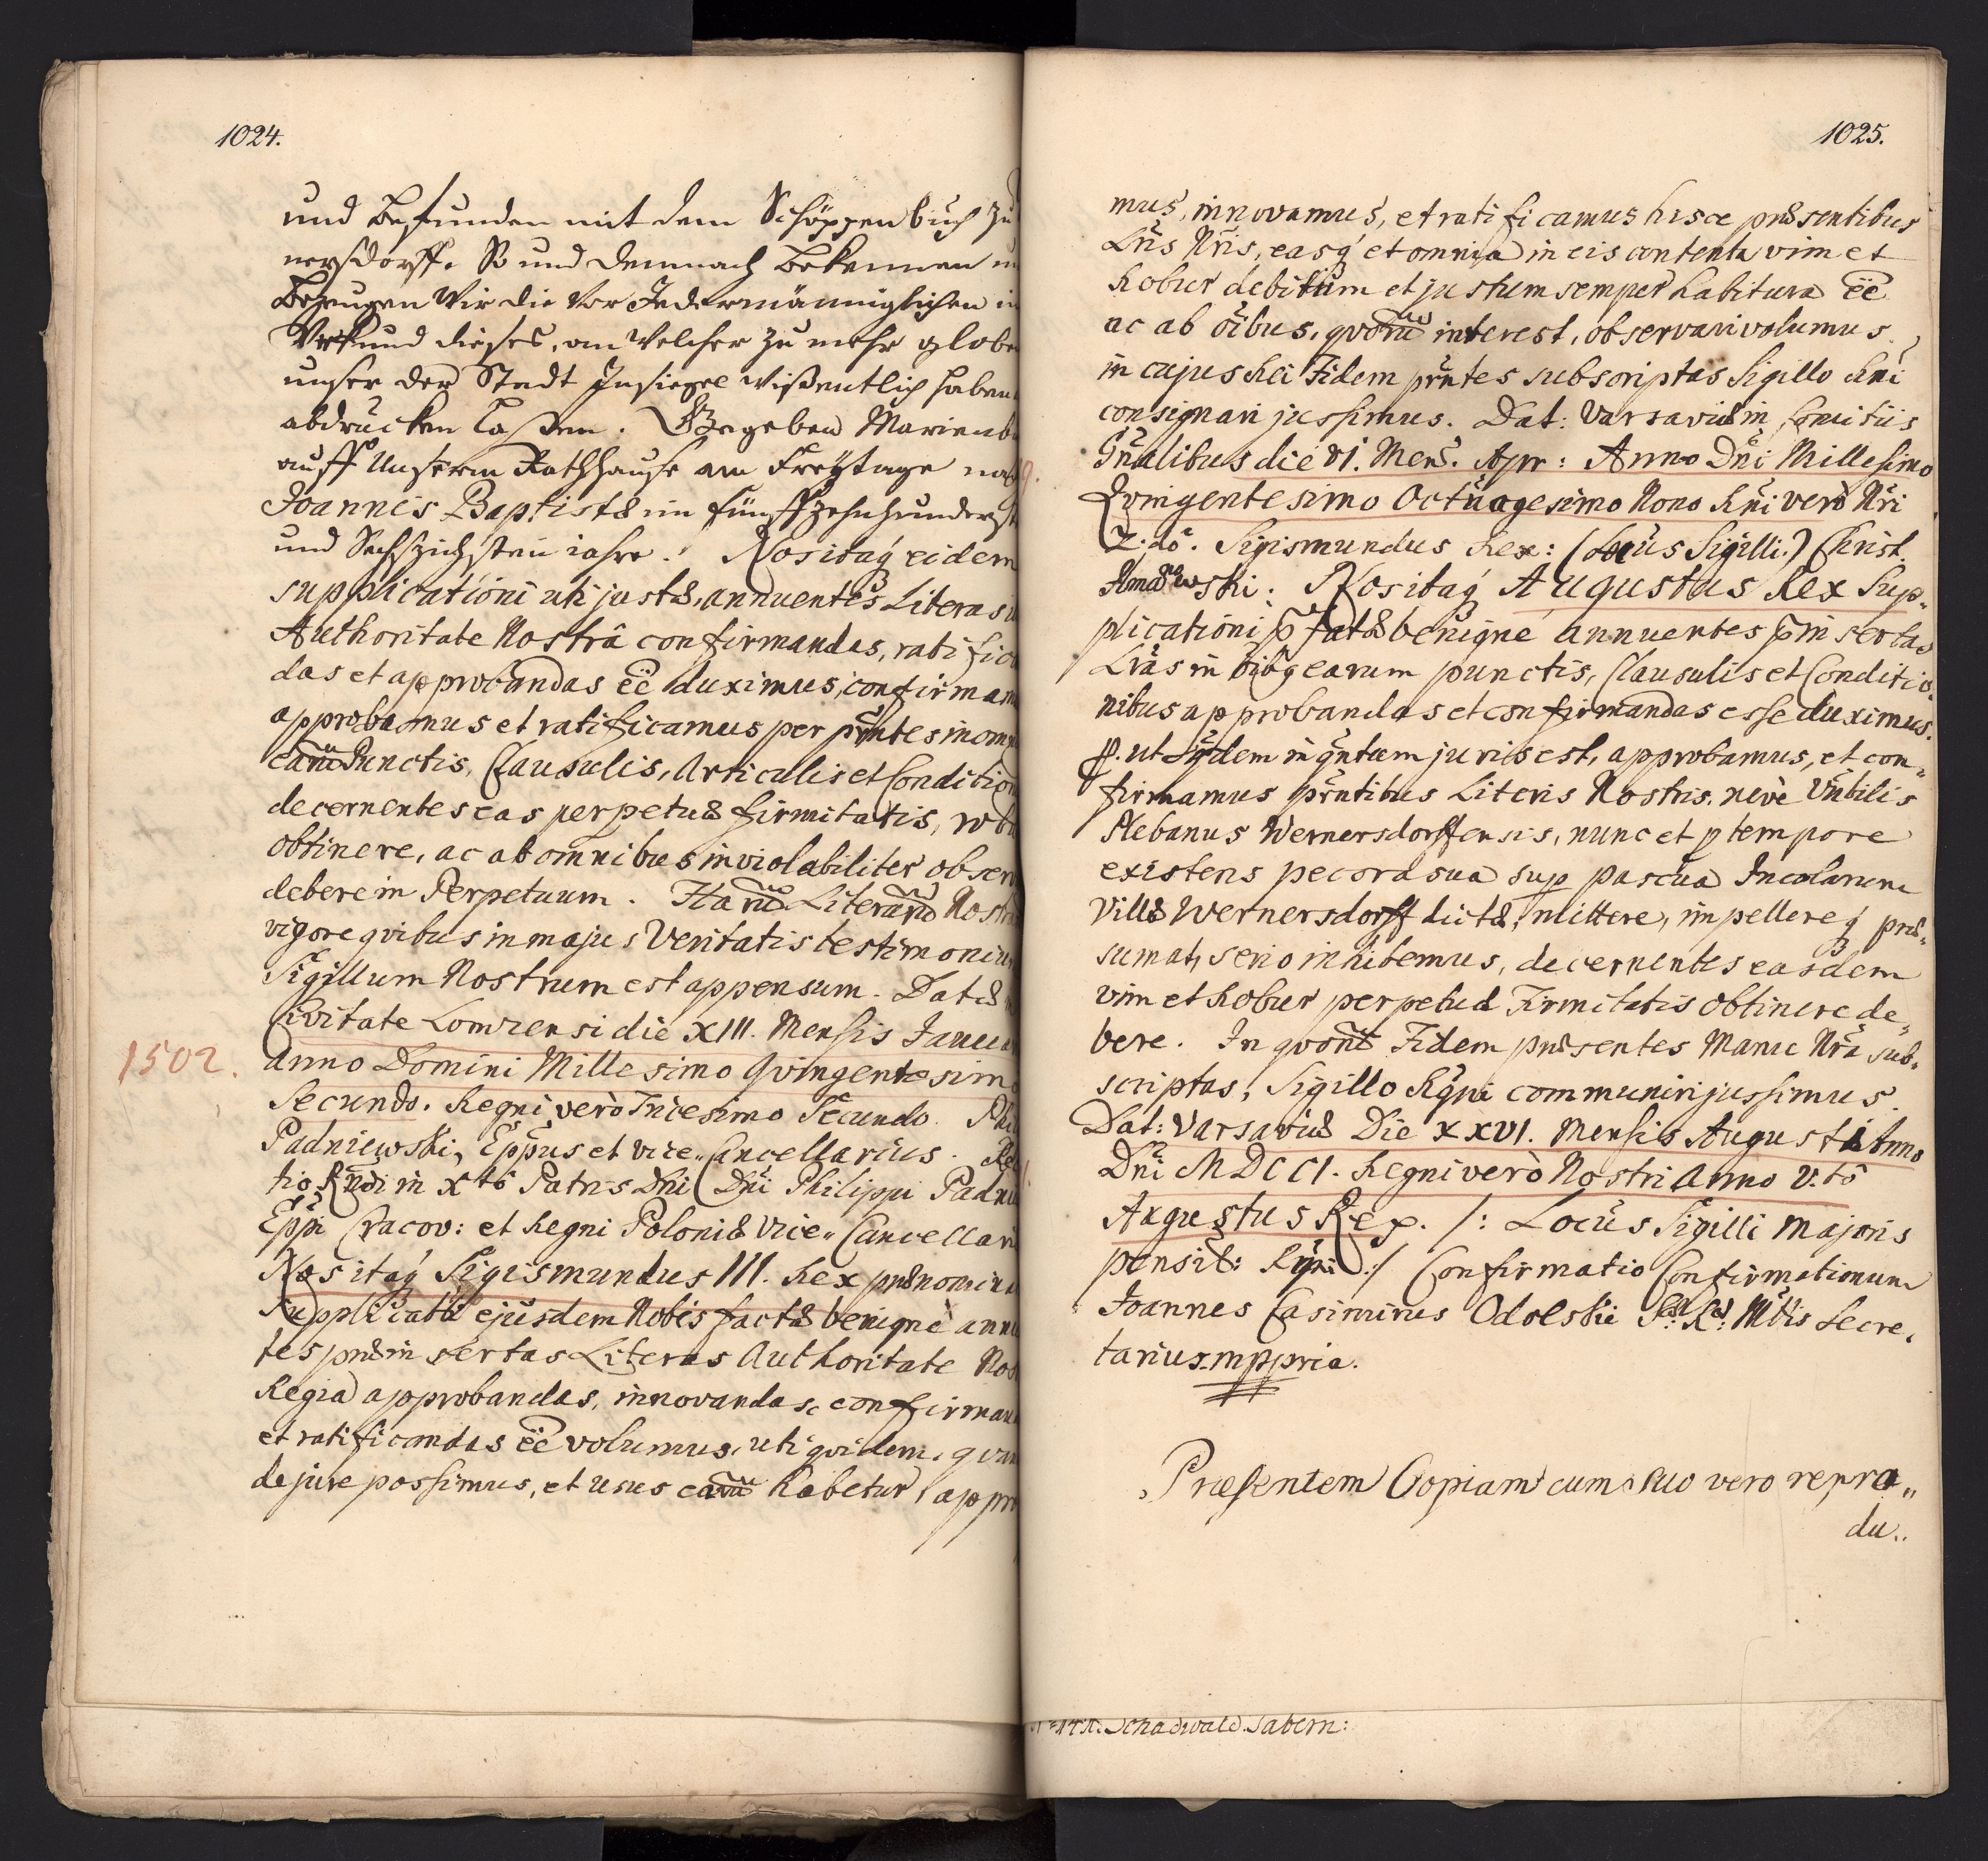 1024.
und befunden mit dem Schöppenbuch zu
nersdorff. So und demnach bekennen
bezeugen Wir die vor Jedermänniglichen
Urkund dieses, an welcher zu mehr
unser der Stadt Insiegel wißentlich haben
abdrucken laßen. Gegeben
auff Unserm Rathhause am Freytage
Joannis Baptistæ im fünffzehnhunder
und Sechszichsten iahre. Nos itaq́ eidem
supplicationi uti justæ, annuentes Literas
Authoritate Nostrâ confirmandas,
das et approbandas ee͞ duximus,
approbamus et ratificamus per pn̄tes
earū Punctis, Clausulis, Articulis et
decernentes eas perpetuæ firmitatis,
obtinere, ac ab omnibus inviolabiliter
debere in Perpetuum. Harū Literarū
vigore qvibus in majus Veritatis
Sigillum Nostrum est appensum. Datæ
Civitate Lomzensi die XIII. Mensis
1502. Anno Domini Millesimo
Secundo. Regni verò Tricesimo Secundo.
Padniewski, Ep̄pus et Vice„Cancellarius.
tio Rn̄di in Xtō Patris Dn̄i Dn̄i Philippi
Ep̄pi Cracov: et Regni Poloniæ Vice„
Nos itaq́ Sigismundus III. Rex
ejusdem Nobis factæ benignè
tes præinsertas Literas Authoritate
Regia approbandas, innovandas,
et ratificandas ee͞ volumus, uti qvidem,
de jure possimus, et usus earū habetur,
1025.
mus, innovamus, et ratificamus hisce præsentibus
Lr̄is Nr̄is, easq́ et omnia in eis contenta vim et
Robur debitum et justum semper habitura ee͞
ac ab oībus, qvorū interest, observari volumus.
in cujus Rei Fidem pn̄tes subscriptas Sigillo Rn̄i
consignari jussimus. Dat: Varsaviæ in Comitiis
Gn̄alibus die VI. Mens. Apr: Anno Dn̄i Millesimo
Qvingentesimo Octuagesimo Nono Rn̄i verò Nr̄i
2.dō. Sigismundus Rex: (Locus Sigilli.) Christ.
Nos itaq́ Augustus Rex Sup„
plicationi p̄fatæ benignè annuentes p̄insertas
Lr̄as in earum punctis, Clausulis et Conditio„
nibus approbandas et confirmandas esse duximus.
in qn̄tum juris est, approbamus, et con„
firmamus pn̄tibus Literis Nostris. nevè
Plebanus Wernersdorffensis, nunc et p tempore
existens pecora sua sup pascua Incolarum
Villæ Wernersdorff dictæ, mittere, impellereq́ præ„
sumat, serio inhibemus, decernentes easdem
vim et Robur perpetuæ Firmitatis obtinere de„
bere. In qvorū Fidem præsentes Manu Nr̄a sub„
scriptas, Sigillo Rgni communiri jussimus.
Dat: Varsaviæ Die XXVI. Mensis Augusti Anno
Dn̄i MDCCI. Regni verò Nostri Anno V.tô
Augustus Rex. /: Locus Sigilli Majoris
Rgni :/ Confirmatio Confirmationum
Joannes Casimirus Odolski Mttis Secre„
tarius. mppria.
Præsentem Copiam cum suo vero repro„
du„
Schadwald. Tabern: